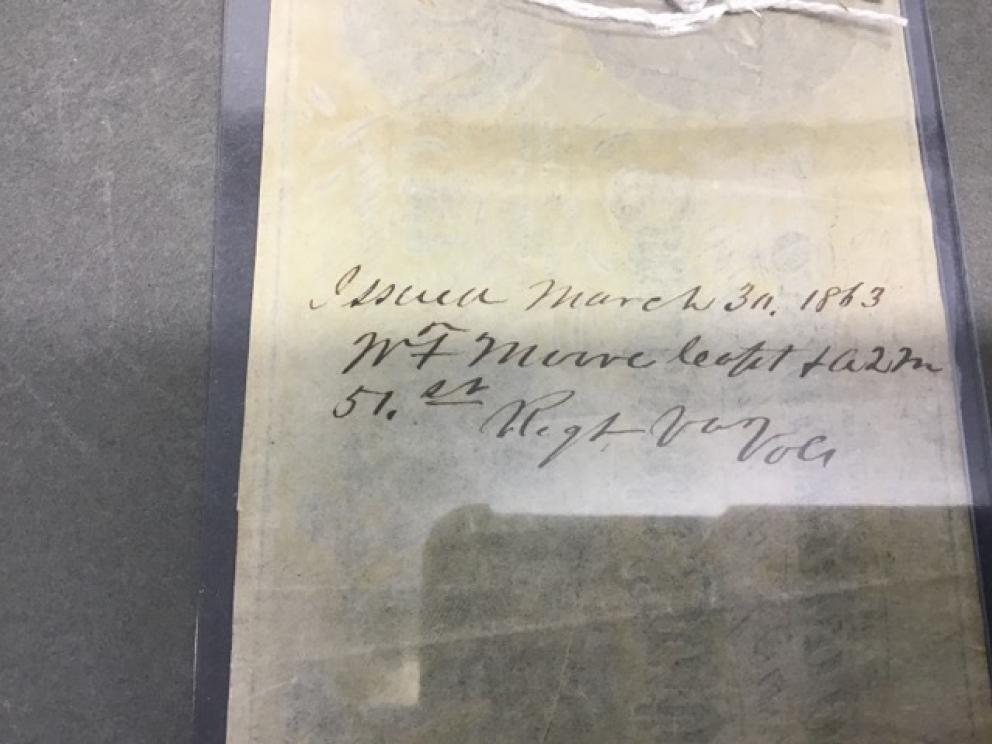 Issued March 30, 1863
Wm F Moore Capt & AQM
51.st Regt Va Vols